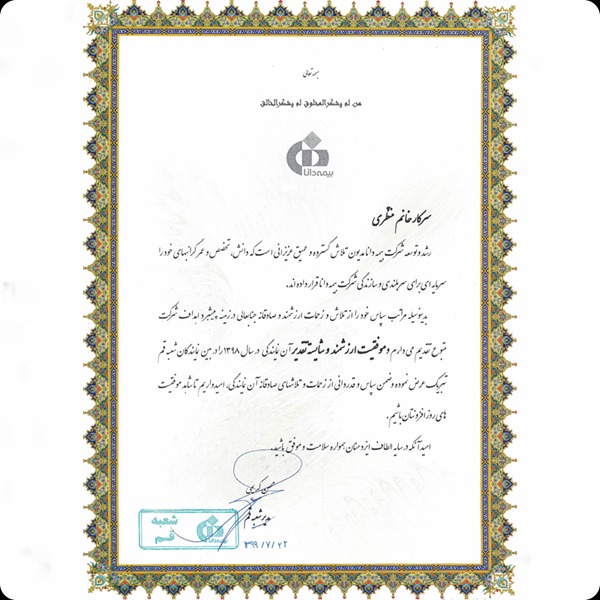 بسمه تعالی
من لم یشکر المخلوق لم یشکر الخالق
بیمه دانا
سرکار خانم منظری
رشد و توسعه شرکت بیمه دانا مدیون تلاش گسترده و عمیق عزیزانی است که دانش، تخصص و عمر گرانبهای خود را
سرمایه ای برای سربلندی و سازندگی شرکت بیمه دانا قرار داده اند.
بدینوسیله مراتب سپاس خود را از تلاش و زحمات ارزشمند و صادقانه جنابعالی در زمینه پیشبرد اهداف شرکت
متبوع تقدیم می دارم و موفقیت ارزشمند و شایسته تقدیر آن نمایندگی در سال ۱۳۹۸ را در بین نمایندگان شعبه قم
تبریک عرض نموده و ضمن سپاس و قدردانی از زحمات و تلاشهای صادقانه آن نمایندگی، امیدواریم تا شاهد موفقیت
های روز افزونتان باشیم.
امید آنکه در سایه الطاف ایزد منان همواره سلامت و موفق باشید.
محسن کریمی
مدیر شعبه قم
شعبه قم
بیمه دانا
۳۹۹/۷/۲۲